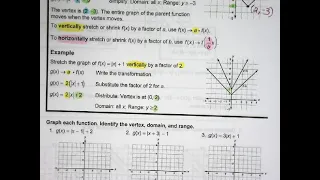 Simplify. Domain: all x; Range: y > -3
The vertex is (2, -3). The entire graph of the parent function
moves when the vertex moves.
(2, -3)
To vertically stretch or shrink f(x) by a factor of a, use f(x) → a • f(x).
To horizontally stretch or shrink f(x) by a factor of b, use f(x) → f
Example
Stretch the graph of f(x) = |x| + 1 vertically by a factor of 2.
g(x) → a • f(x) Write the transformation.
g(x) = 2(|x| + 1) Substitute the 2 for a.
g(x) = 2|x| + 2 Distribute. Vertex is at (0, 2).
Domain: all x; Range: y ≥ 2
Graph each function. Identify the vertex, domain, and range.
1. g(x) = |x – 1| + 2 2. g(x) = |x + 3| – 1 3. g(x) = 3|x| + 1